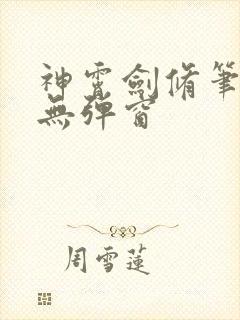 神霄劍脩筆
無彈窗
周雪蓮